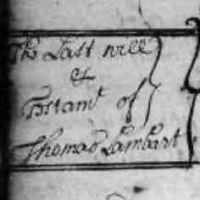 The Last will
&
Testamt of
Thomas Lambart